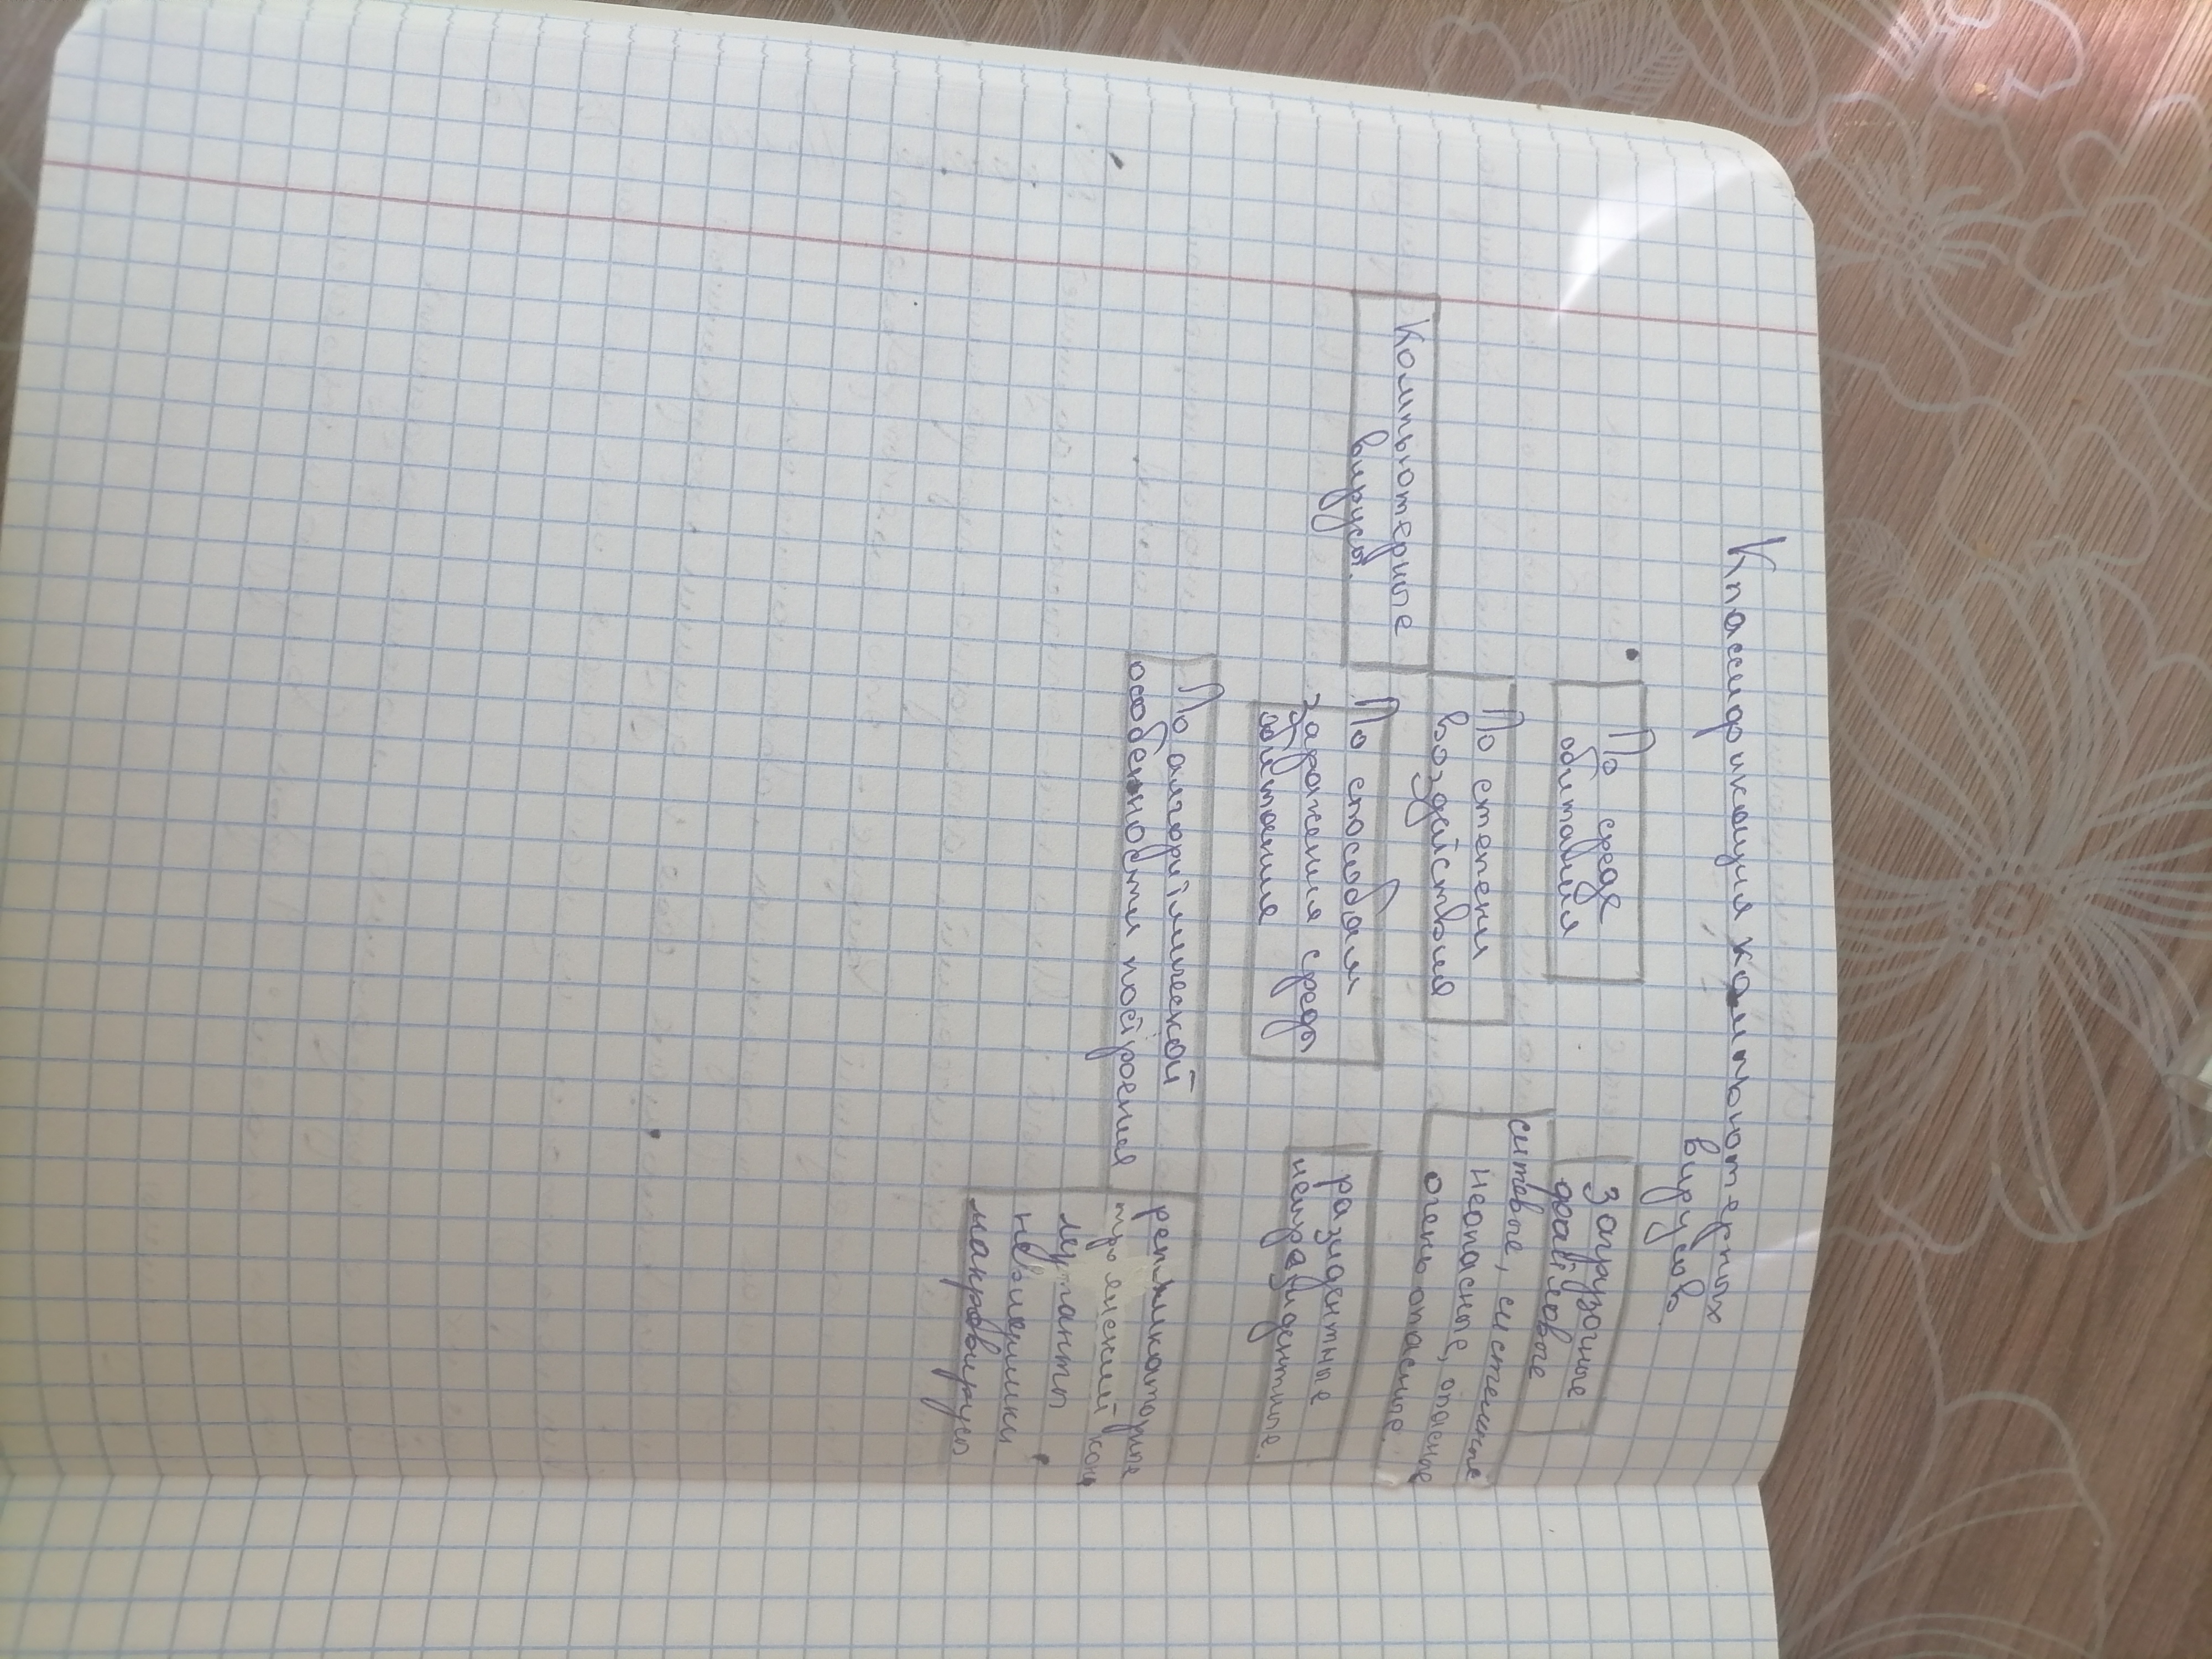 Классификация компьютерных
вирусов.
Компьютерные
вирусы.
По среде
обитания
загрузочные
файловые
ситевые, системные
По степени
воздействия
неопасные, опасные
очень опасные.
По способам
заражения среды
обитания
разидентные
неиразидентные.
По алгоритмической
особенности построения
репликаторные
троянский конь
мутанты
невидимки
макровирусы